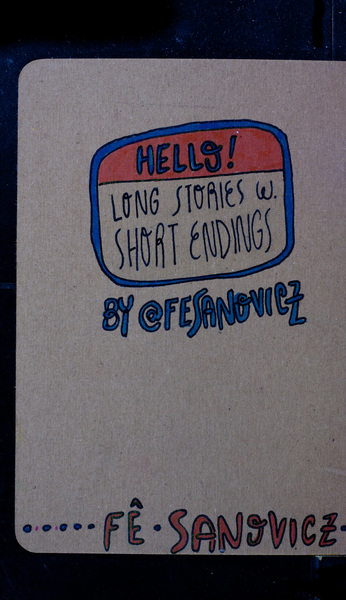 HELLO!
LONG STORIES W.
SHORT ENDINGS
BY @FESANOVICZ
FÊ·SANOVICZ